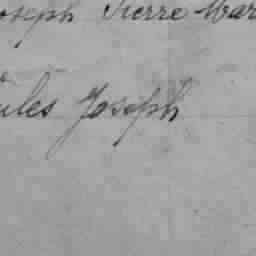 Joseph Pierre Mar
Jules Joseph